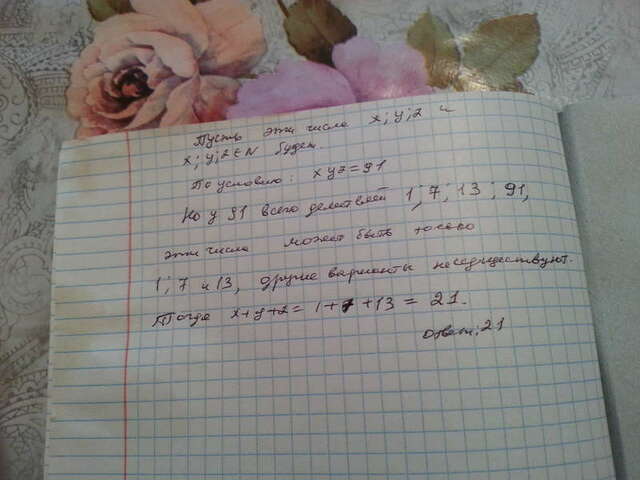 Пусть эти числа x; y; z и
x; y; z ∈ N будет.
По условию: xyz = 91
Но у 91 всего делителей 1; 7; 13; 91,
эти числа может быть только
1; 7 и 13, другие варианты не существуют.
Тогда x+y+z = 1+7+13 = 21.
Ответ: 21